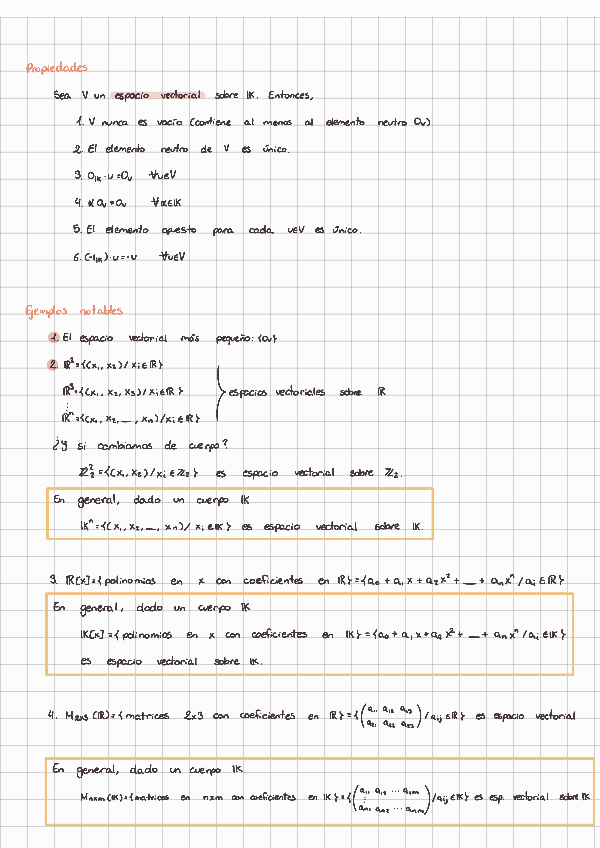 Propiedades
Sea V un espacio vectorial sobre 𝕂. Entonces,
1. V nunca es vacío (contiene al menos al elemento neutro 0ᵥ)
2. El elemento neutro de V es único.
3. 0_𝕂·u=0ᵥ ∀u∈V
4. α 0ᵥ=0ᵥ ∀α∈𝕂
5. El elemento opuesto para cada u∈V es único.
6. (-1_𝕂)·u=-u ∀u∈V
Ejemplos notables
1. El espacio vectorial más pequeño: {0ᵥ}
2. ℝ²={(x₁, x₂)/ xᵢ∈ℝ}
ℝ³={(x₁, x₂, x₃)/xᵢ∈ℝ} espacios vectoriales sobre ℝ
⋮
ℝⁿ={(x₁, x₂, __, xₙ)/xᵢ∈ℝ}
¿Y si cambiamos de cuerpo?
ℤ₂²={(x₁, x₂)/xᵢ∈ℤ₂} es espacio vectorial sobre ℤ₂.
En general, dado un cuerpo 𝕂
𝕂ⁿ={(x₁, x₂, __, xₙ)/ xᵢ∈𝕂} es espacio vectorial sobre 𝕂.
3. ℝ[x]={polinomios en x con coeficientes en ℝ}={a₀ + a₁x + a₂x² + __ + aₙxⁿ / aᵢ∈ℝ}
En general, dado un cuerpo 𝕂
𝕂[x]={polinomios en x con coeficientes en 𝕂}={a₀ + a₁x + a₂x² + __ + aₙxⁿ / aᵢ∈𝕂}
es espacio vectorial sobre 𝕂.
4. M₂ₓ₃(ℝ)={matrices 2x3 con coeficientes en ℝ}={(a₁₁ a₁₂ a₁₃
a₂₁ a₂₂ a₂₃)/aᵢⱼ∈ℝ} es espacio vectorial
En general, dado un cuerpo 𝕂
Mₙₓₘ(𝕂)={matrices en nxm con coeficientes en 𝕂}={(a₁₁ a₁₂ ⋯ a₁ₘ
⋮
aₙ₁ aₙ₂ ⋯ aₙₘ)/aᵢⱼ∈𝕂} es esp. vectorial sobre 𝕂